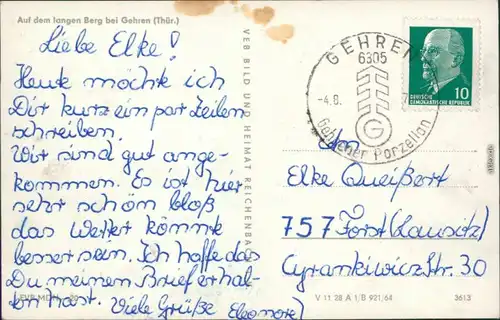 Auf dem langen Berg bei Gehren (Thür.)
Liebe Elke!
Heute möchte ich
Dir kurz ein par Zeilen
schreiben.
Wir sind gut ange-
kommen. Es ist hier
sehr schön bloß
das Wetter könnte
besser sein. Ich hoffe das
Du meinen Brief erhal-
ten hast. Viele Grüße Eleonore
VEB BILD UND HEIMAT REICHENBACH
GEHREN
6305
-4.8.
G
Gehrener Porzellan
10
DEUTSCHE
DEMOKRATISCHE REPUBLIK
An
Elke Queißert
757 Forst (Lausitz)
Cyrankiewicz Str. 30
V 11 28 A 1/B 921/64
3613